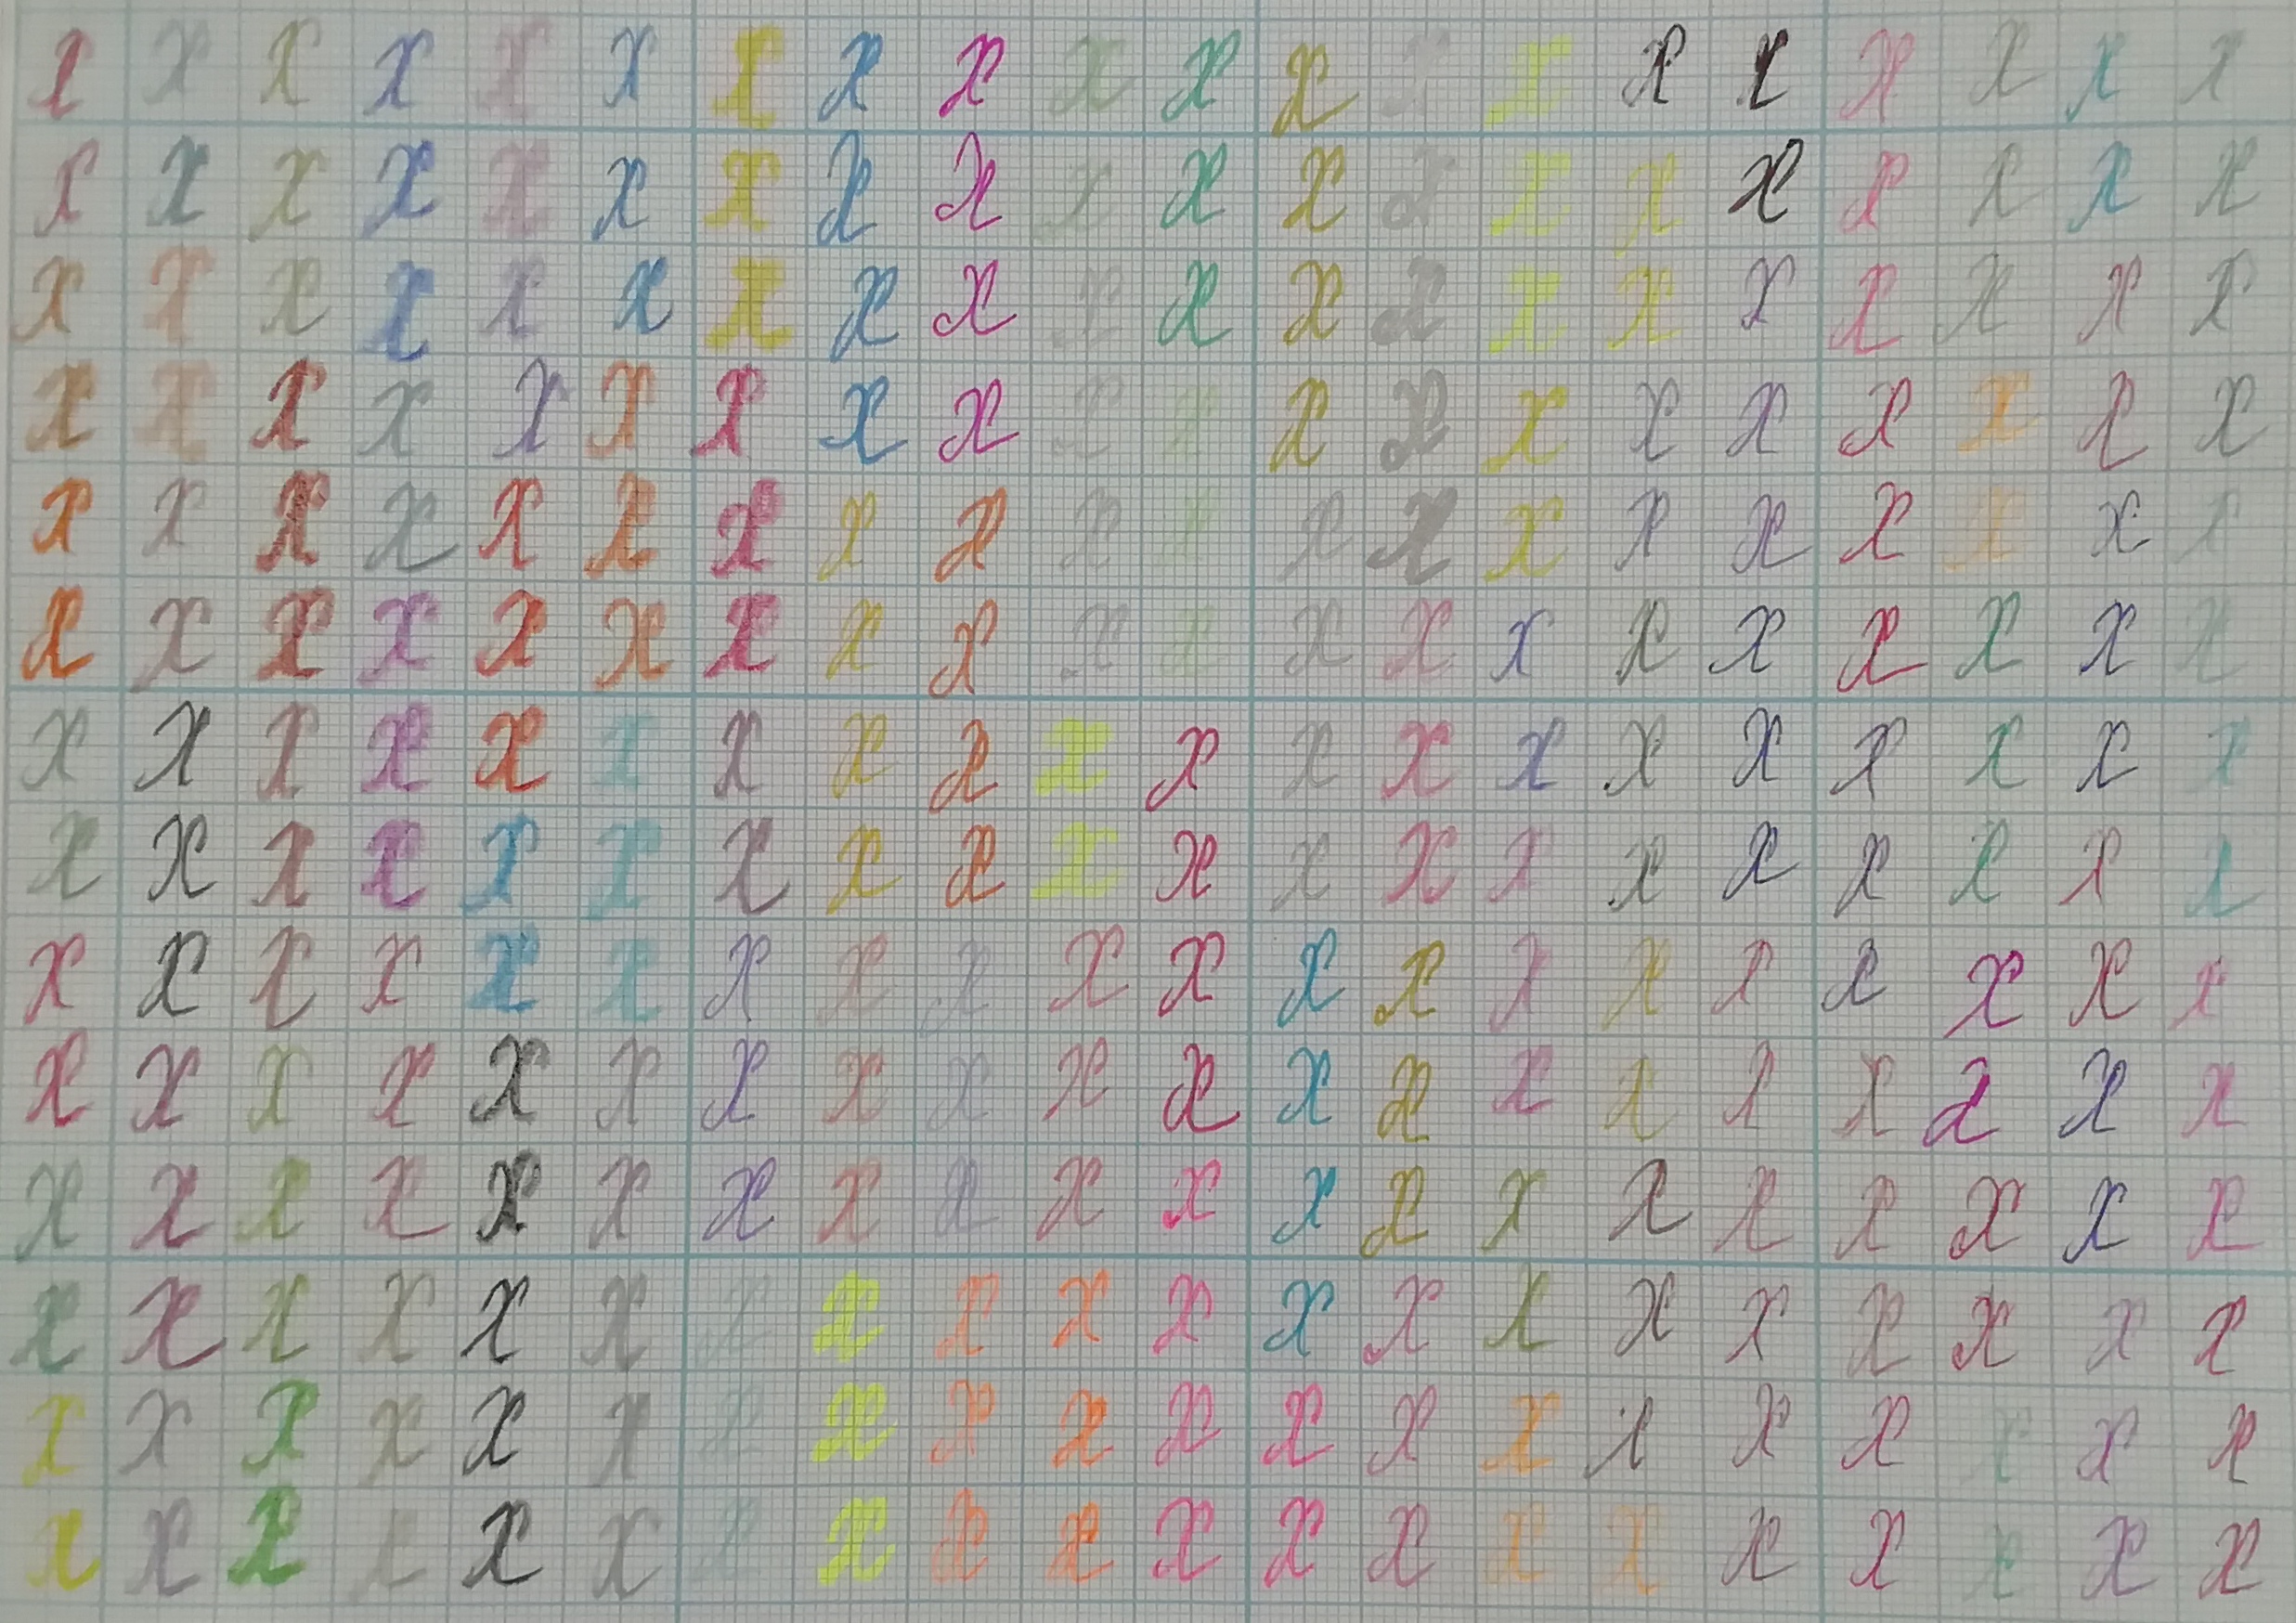 X X X X X X X X X X X X X X X X X X X X
X X X X X X X X X X X X X X X X X X X X
X X X X X X X X X X X X X X X X X X X X
X X X X X X X X X X X X X X X X X X X X
X X X X X X X X X X X X X X X X X X X X
X X X X X X X X X X X X X X X X X X X X
X X X X X X X X X X X X X X X X X X X X
X X X X X X X X X X X X X X X X X X X X
X X X X X X X X X X X X X X X X X X X X
X X X X X X X X X X X X X X X X X X X X
X X X X X X X X X X X X X X X X X X X X
X X X X X X X X X X X X X X X X X X X X
X X X X X X X X X X X X X X X X X X X X
X X X X X X X X X X X X X X X X X X X X